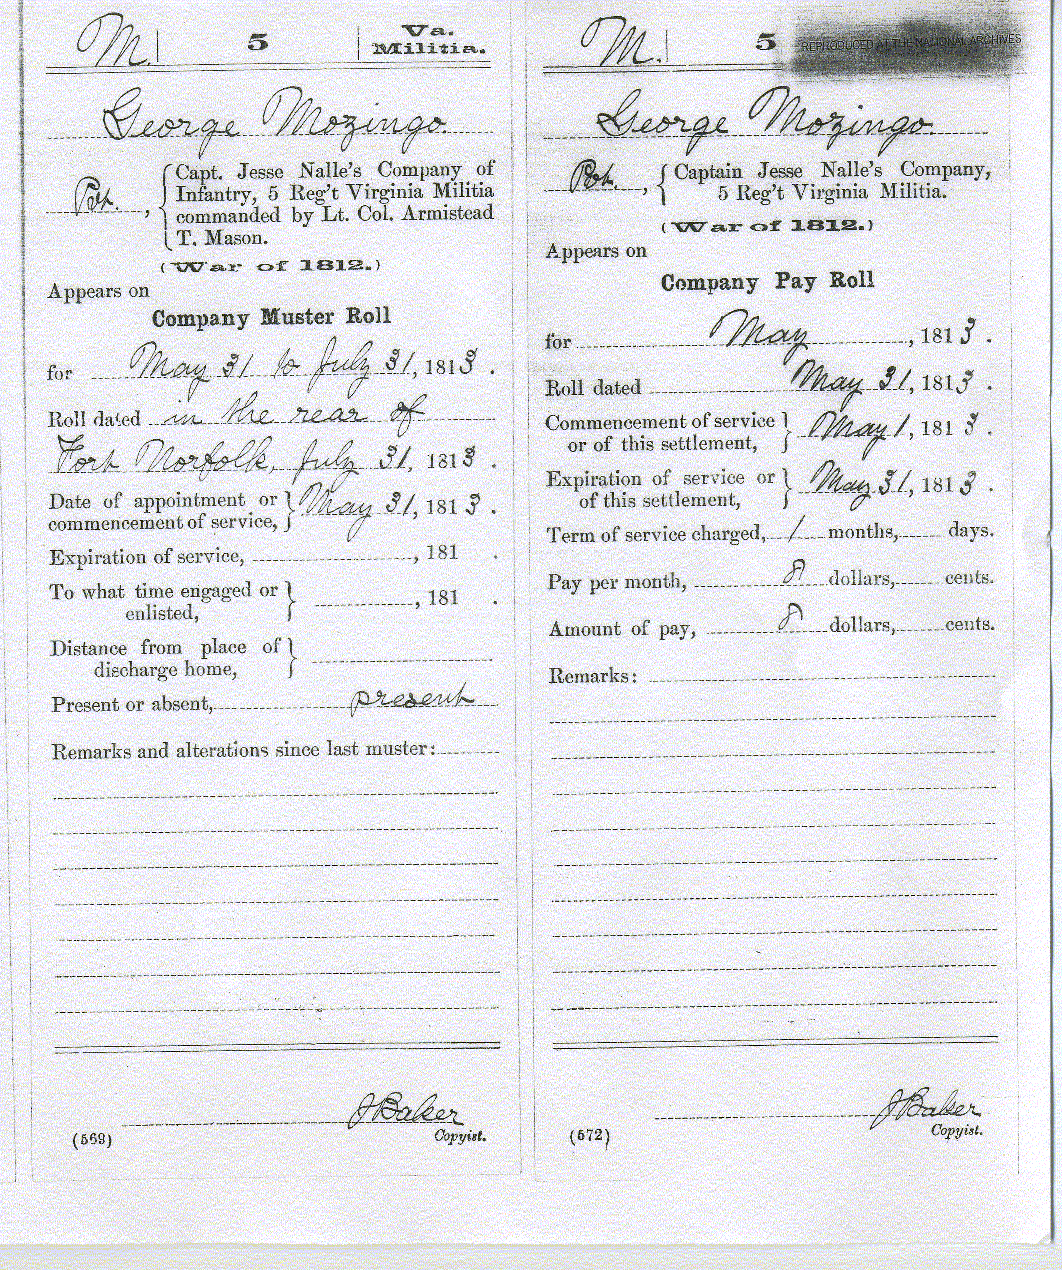 M. | 5 | Va. Militia.
George Mozingo.
Pvt., { Capt. Jesse Nalle's Company of
Infantry, 5 Reg't Virginia Militia
commanded by Lt. Col. Armistead
T. Mason.
(War of 1812.)
Appears on
Company Muster Roll
for May 31 to July 31, 1813.
Roll dated in the rear of
Fort Norfolk, July 31, 1813.
Date of appointment or
commencement of service, } May 31, 1813.
Expiration of service, , 181 .
To what time engaged or
enlisted, } , 181 .
Distance from place of
discharge home, }
Present or absent, present
Remarks and alterations since last muster:
J Baker
(569) Copyist.
M. | 5
REPRODUCED AT THE NATIONAL ARCHIVES
George Mozingo.
Pvt., { Captain Jesse Nalle's Company,
5 Reg't Virginia Militia.
(War of 1812.)
Appears on
Company Pay Roll
for May, 1813.
Roll dated May 31, 1813.
Commencement of service
or of this settlement, } May 1, 1813.
Expiration of service or
of this settlement, } May 31, 1813.
Term of service charged, 1 months, days.
Pay per month, 8 dollars, cents.
Amount of pay, 8 dollars, cents.
Remarks:
J Baker
(572) Copyist.